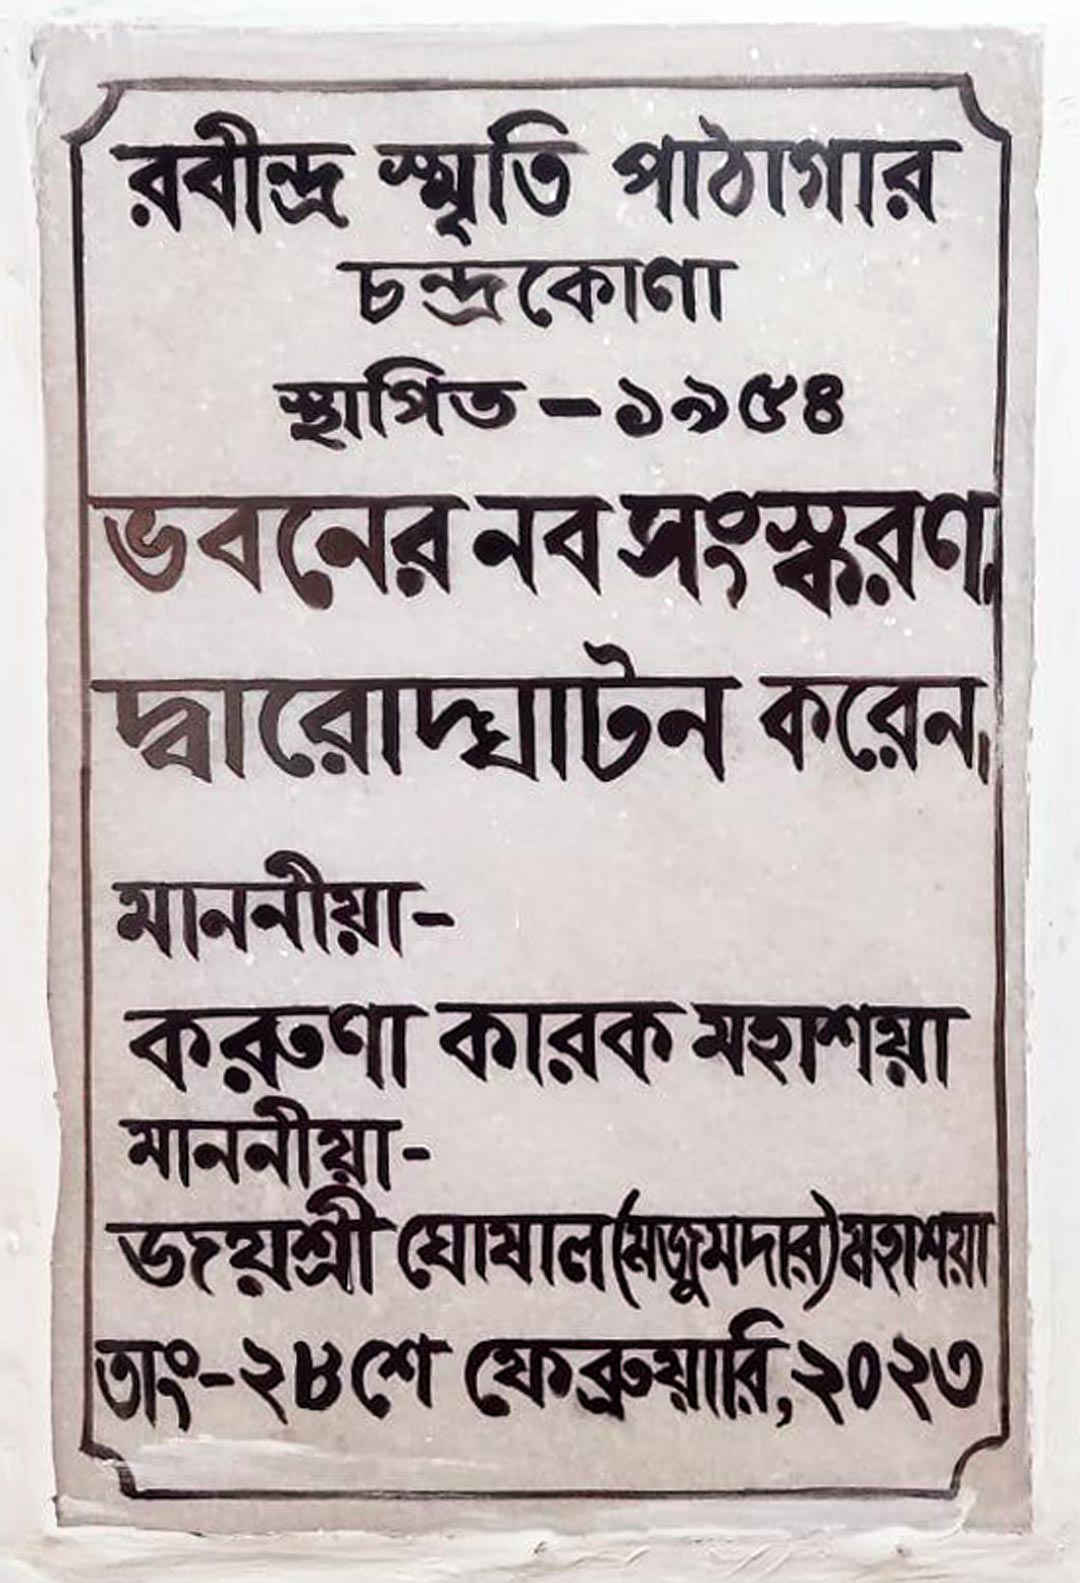 রবীন্দ্র স্মৃতি পাঠাগার
চন্দ্রকোণা
স্থাপিত - ১৯৫৪
ভবনের নব সংস্করণ,
দ্বারোদ্ঘাটন করেন,
মাননীয়া-
করুণা কারক মহাশয়া
মাননীয়া-
জয়শ্রী ঘোষাল (মজুমদার) মহাশয়া
তাং-২৮শে ফেব্রুয়ারি, ২০২৩